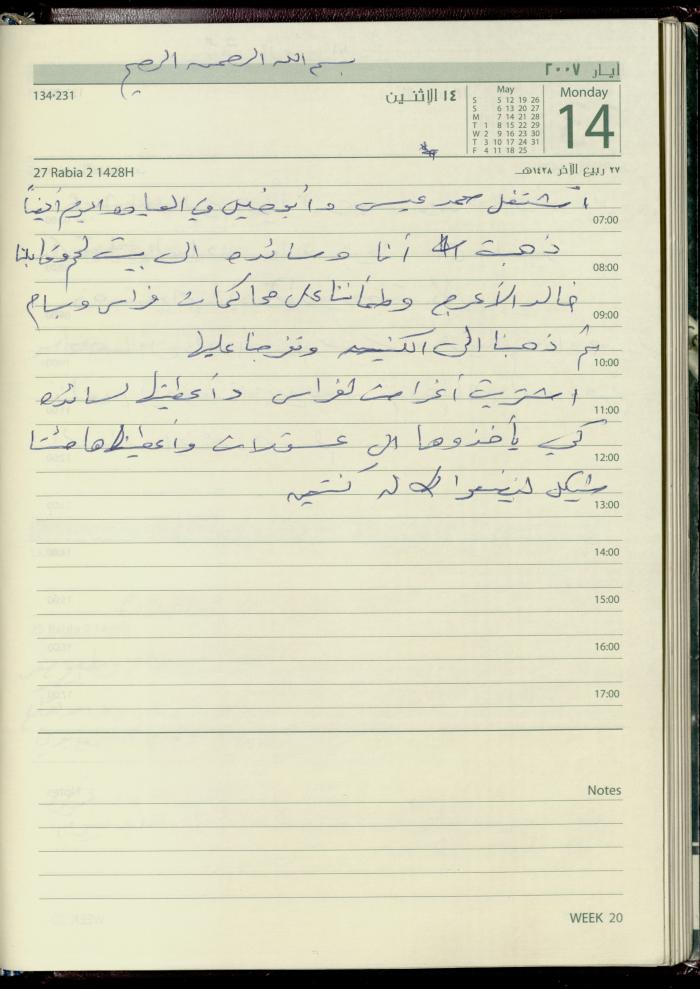 بسم الله الرحمن الرحيم
أيـار ٢٠٠٧
134•231
١٤ الإثنـين
May
S 5 12 19 26
S 6 13 20 27
M 7 14 21 28
T 1 8 15 22 29
W 2 9 16 23 30
T 3 10 17 24 31
F 4 11 18 25
Monday
14
27 Rabia 2 1428H
٢٧ ربيع الآخر ١٤٢٨هـ
اشتغل محمد عيسى وأبو خليل في اليوم أيضاً
07:00
ذهبت أنا وسائده الى بيت لحم وقابلنا
08:00
خالد الأعرج وطمأننا على محاكمات فراس وسام
09:00
ثم ذهبنا الى الكنيسه وتفرجنا عليها
10:00
اشتريت أغراض لفراس وأعطيتها لسائده
11:00
كي يأخذوها الى عسقلان وأعطيتها مئتا
12:00
شيكل ليضعوا له كنتين
13:00
14:00
15:00
16:00
17:00
Notes
WEEK 20